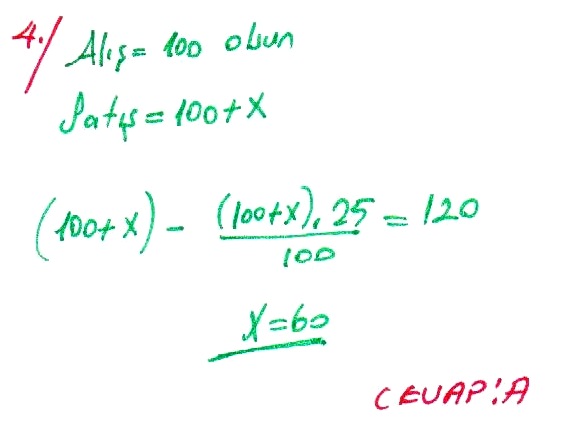 4./ Alış = 100 olsun
Satış = 100+X
(100+X) - (100+X).25/100 = 120
X=60
CEVAP:A